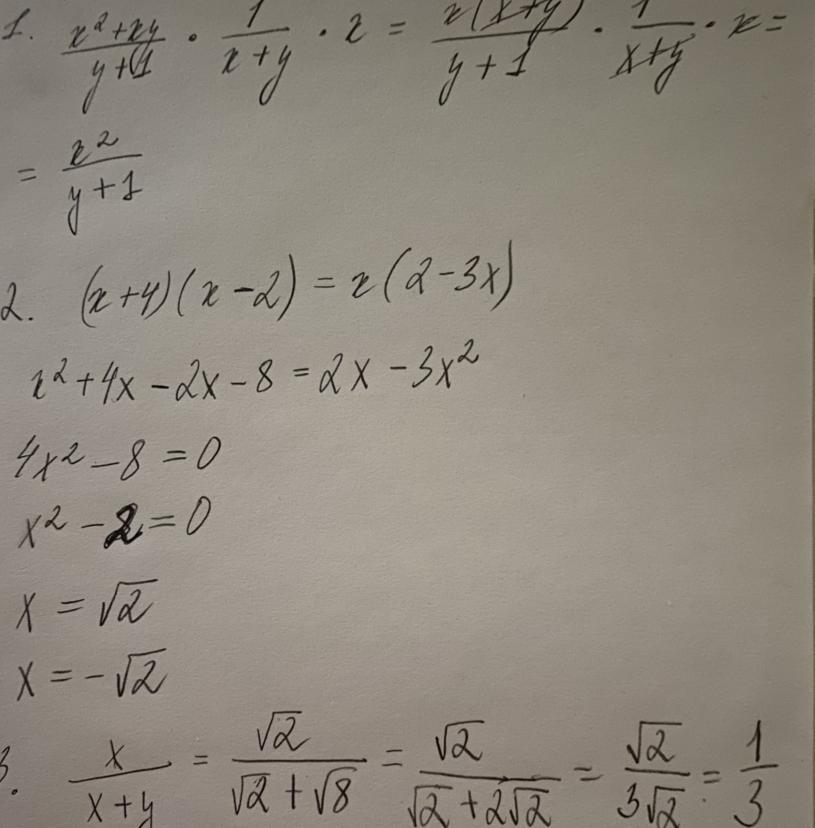 1. (x²+xy)/(y+1) · 1/(x+y) · x = x(x+y)/(y+1) · 1/(x+y) · x =
= x²/(y+1)
2. (x+4)(x-2) = x(2-3x)
x²+4x-2x-8 = 2x-3x²
4x²-8=0
x²-2=0
x=√2
x=-√2
3. x/(x+y) = √2/(√2+√8) = √2/(√2+2√2) = √2/(3√2) = 1/3